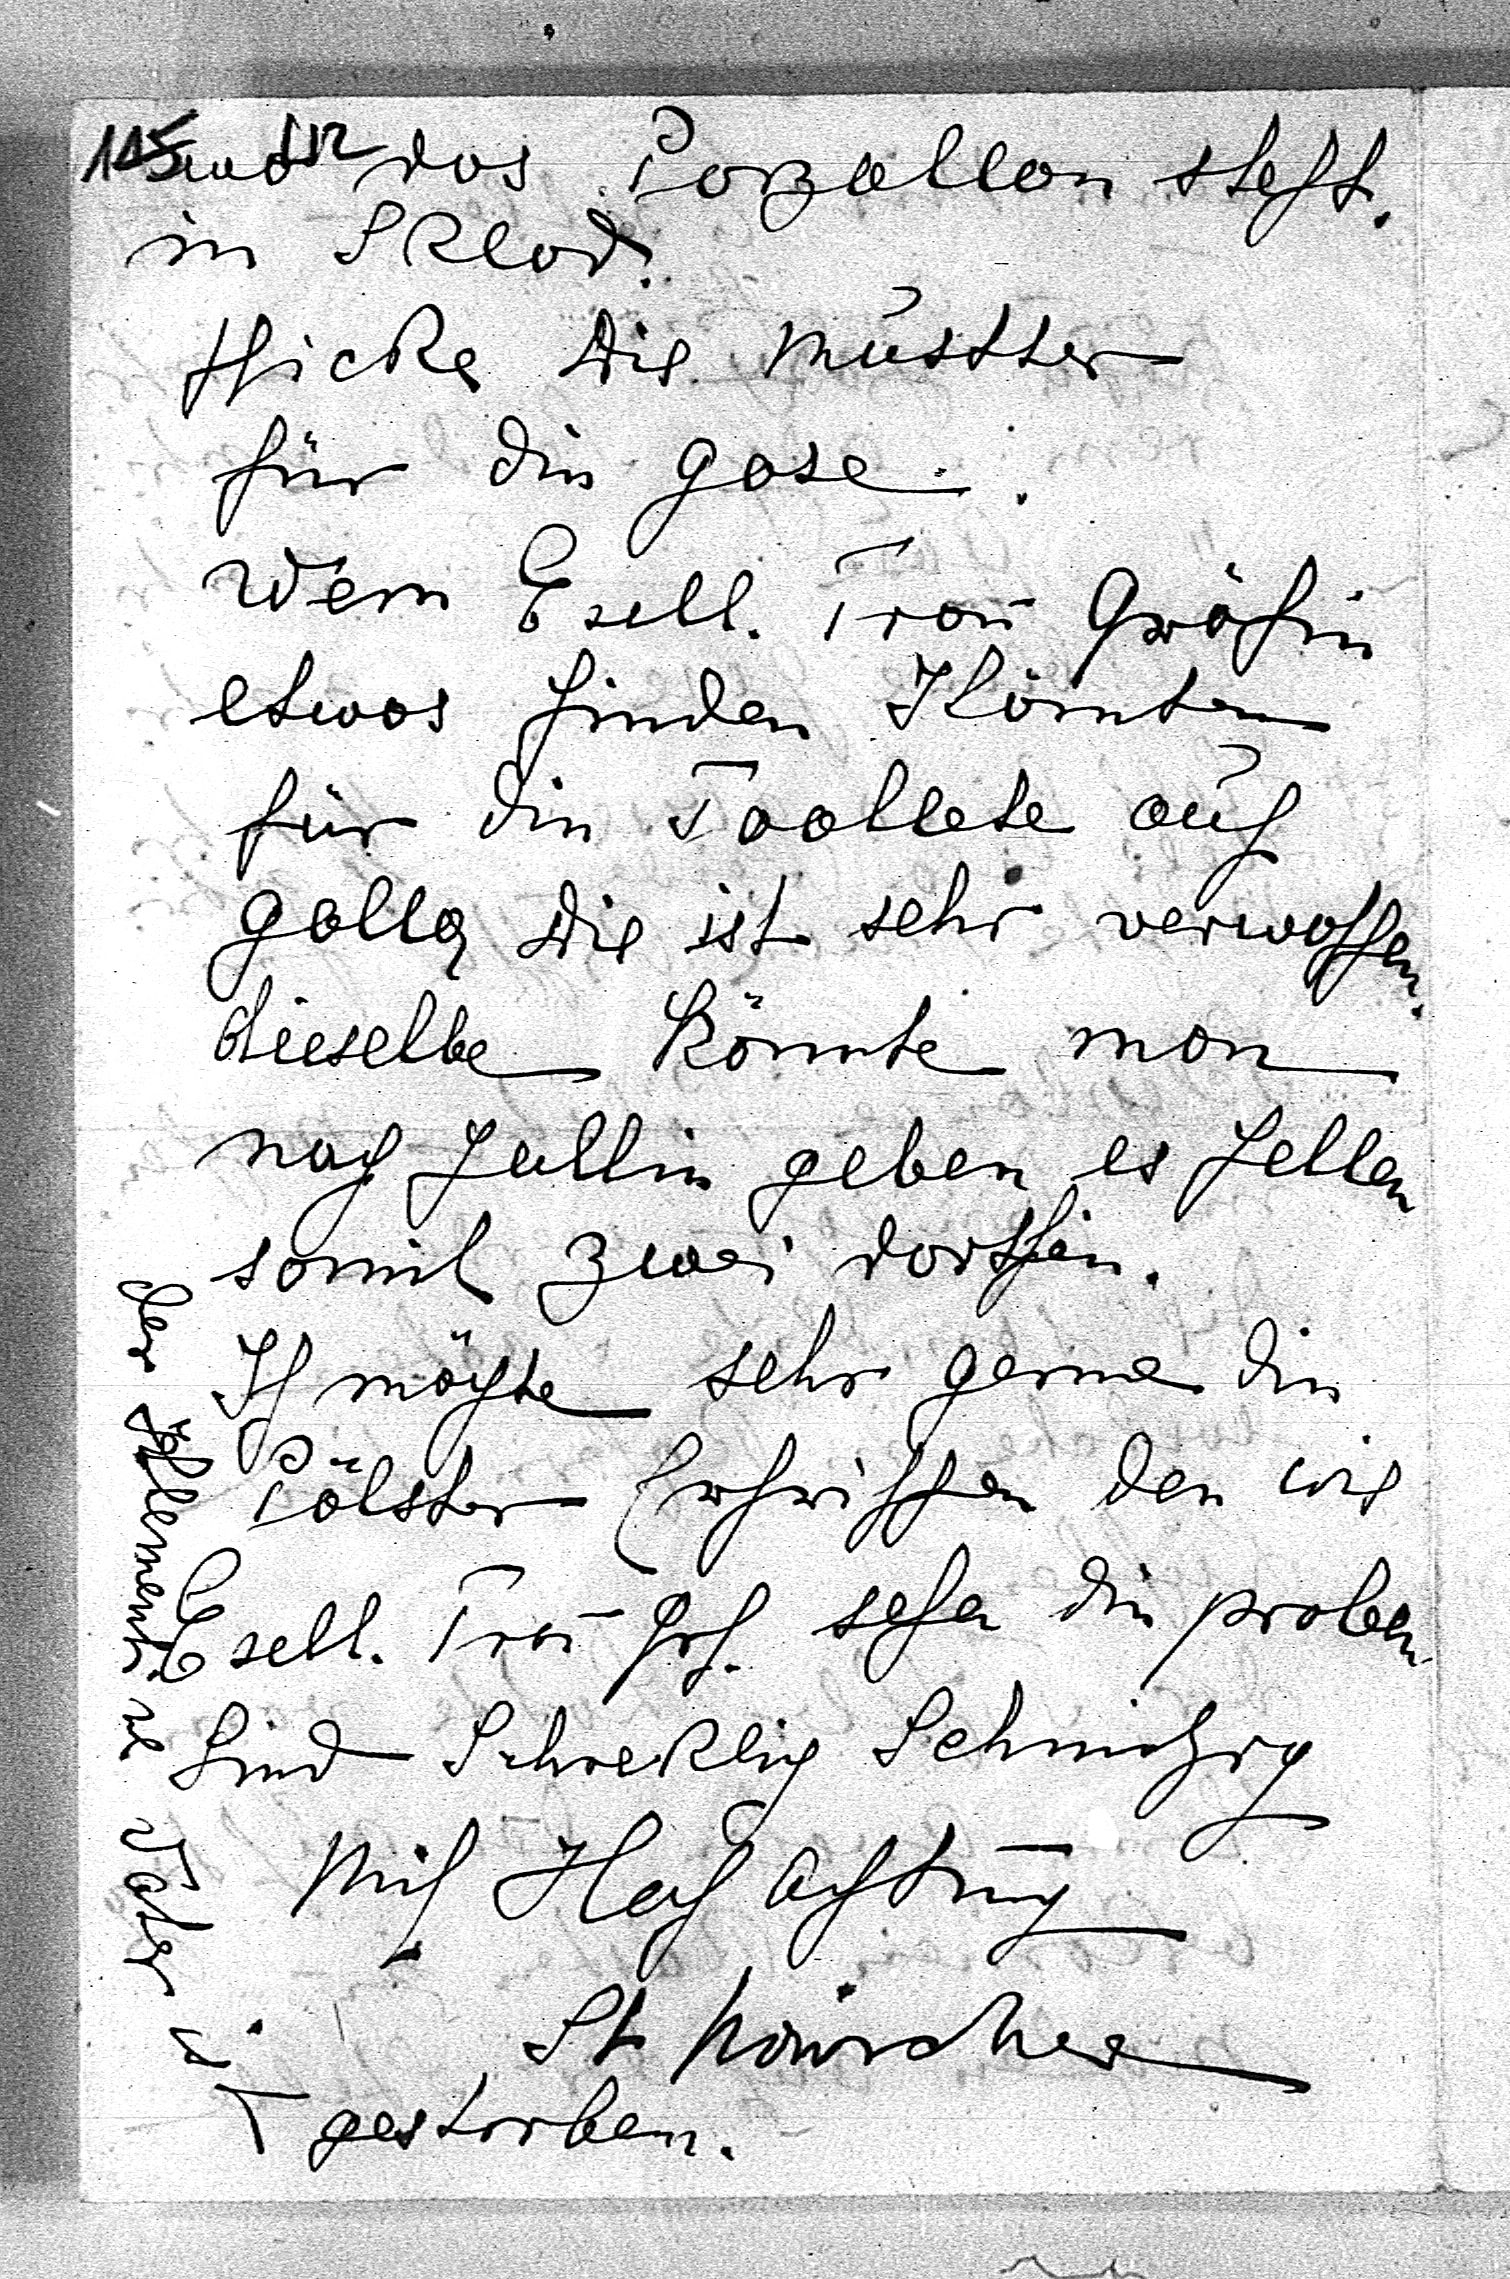 115
und das Porzallan steht.
in Sklad.
Hicke die Müstter
für die gase.
Wen Exell. Frau Gräfin
etwas finden Könnten
für die Toallete auf
galla die ist sehr verwossen.
dieselbe könnte man
nach Jallin geben es fellen
somit zwei dorthin.
Ich möchte sehr gerne die
Pölster den wie
Exell. Frau Grf. sehen die proben
Sind Schreklich Schmitzig
Mit Hochachtung
St
der Vater ist
gestorben.